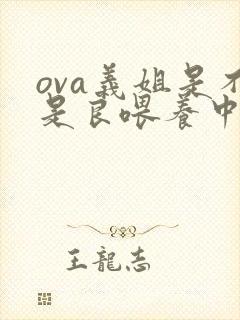 ova義姐是不
是良喂養中
王龍志